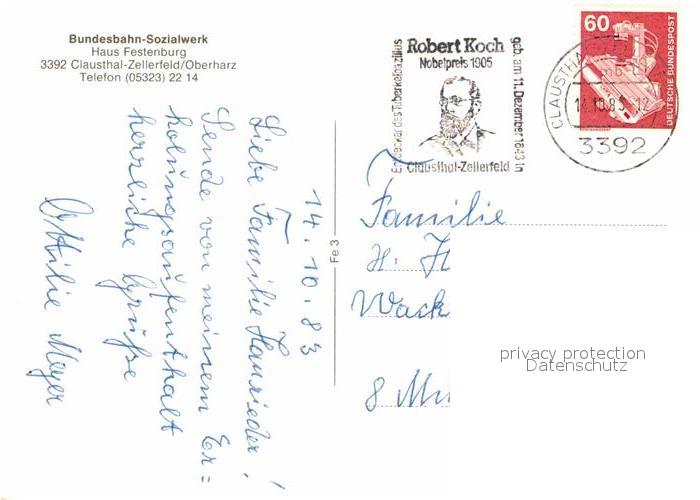 Bundesbahn-Sozialwerk
Haus Festenburg
3392 Clausthal-Zellerfeld/Oberharz
Telefon (05323) 22 14
14.10.83
Liebe Familie Hansrieder!
Sende von meinem Er=
holungsaufenthalt
herzliche Grüße
Ottilie Meyer
Fe 3
Robert Koch
Nobelpreis 1905
Entdecker des Tuberkelbazillus
geb. am 11. Dezember 1843 in
Clausthal-Zellerfeld
60
DEUTSCHE BUNDESPOST
CLAUSTHAL
14.10.83
12
3392
Familie
H. H
Wack
8 Mü
privacy protection
Datenschutz